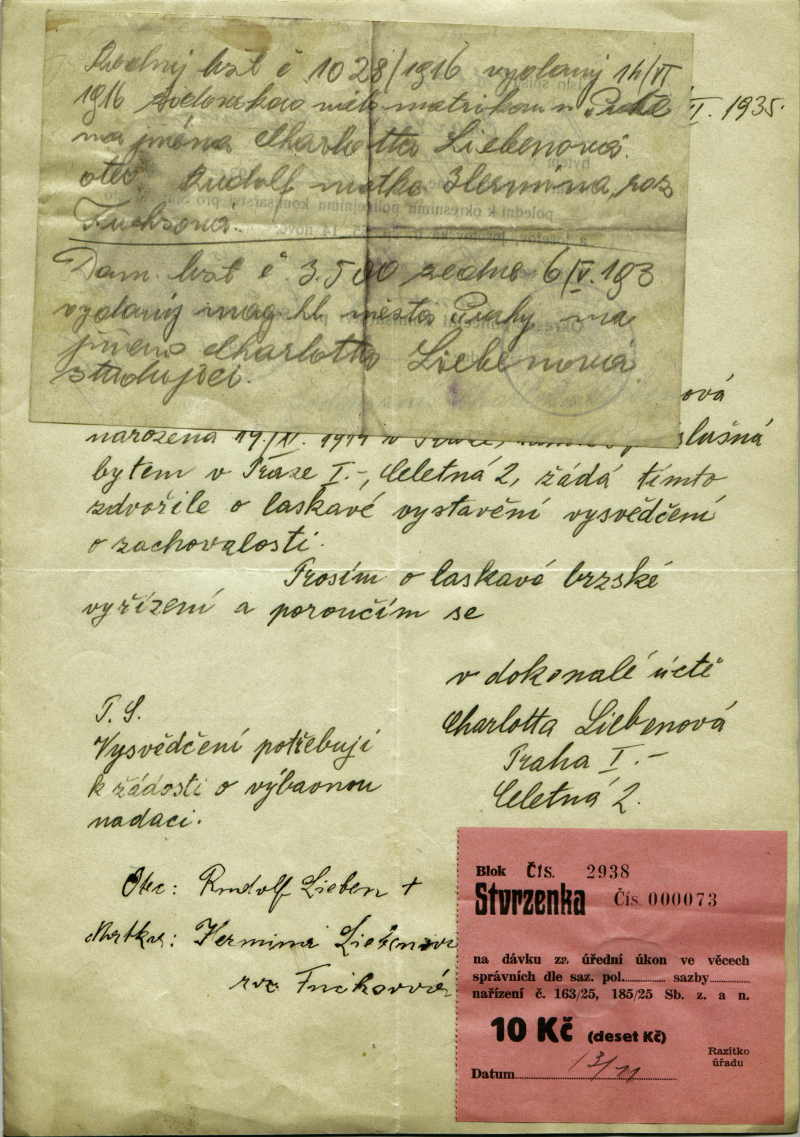 Rodný list č 1028/1916 vydaný 14/VI
1916 židovskou matrikou v Praze
na jméno Charlotta Liebenová.
otec Rudolf matka Hermina, roz
Fuchsová.
Dom. list č 3.500 ze dne 6/IV. 193
vydaný mag hl. města Prahy na
jméno Charlotta Liebenová
studující.
I. 1935.
ová
narozená 19./IV. v Praze, slušná
bytem v Praze I.-, Celetná 2, žádá tímto
zdvořile o laskavé vystavění vysvědčení
o zachovalosti.
Prosím o laskavé brzské
vyřízení a poroučím se
v dokonalé úctě
Charlotta Liebenová
Praha I.-
Celetná 2.
P. S.
Vysvědčení potřebuji
k žádosti o výbavnou
nadaci.
Otec: Rudolf Lieben +
Matka: Hermina Liebenová
roz Fuchsová
Blok Čís. 2938
Stvrzenka Čís. 000073
na dávku za úřední úkon ve věcech
správních dle saz. pol......... sazby.........
nařízení č. 163/25, 185/25 Sb. z. a n.
10 Kč (deset Kč)
Razítko
úřadu
Datum 13/11